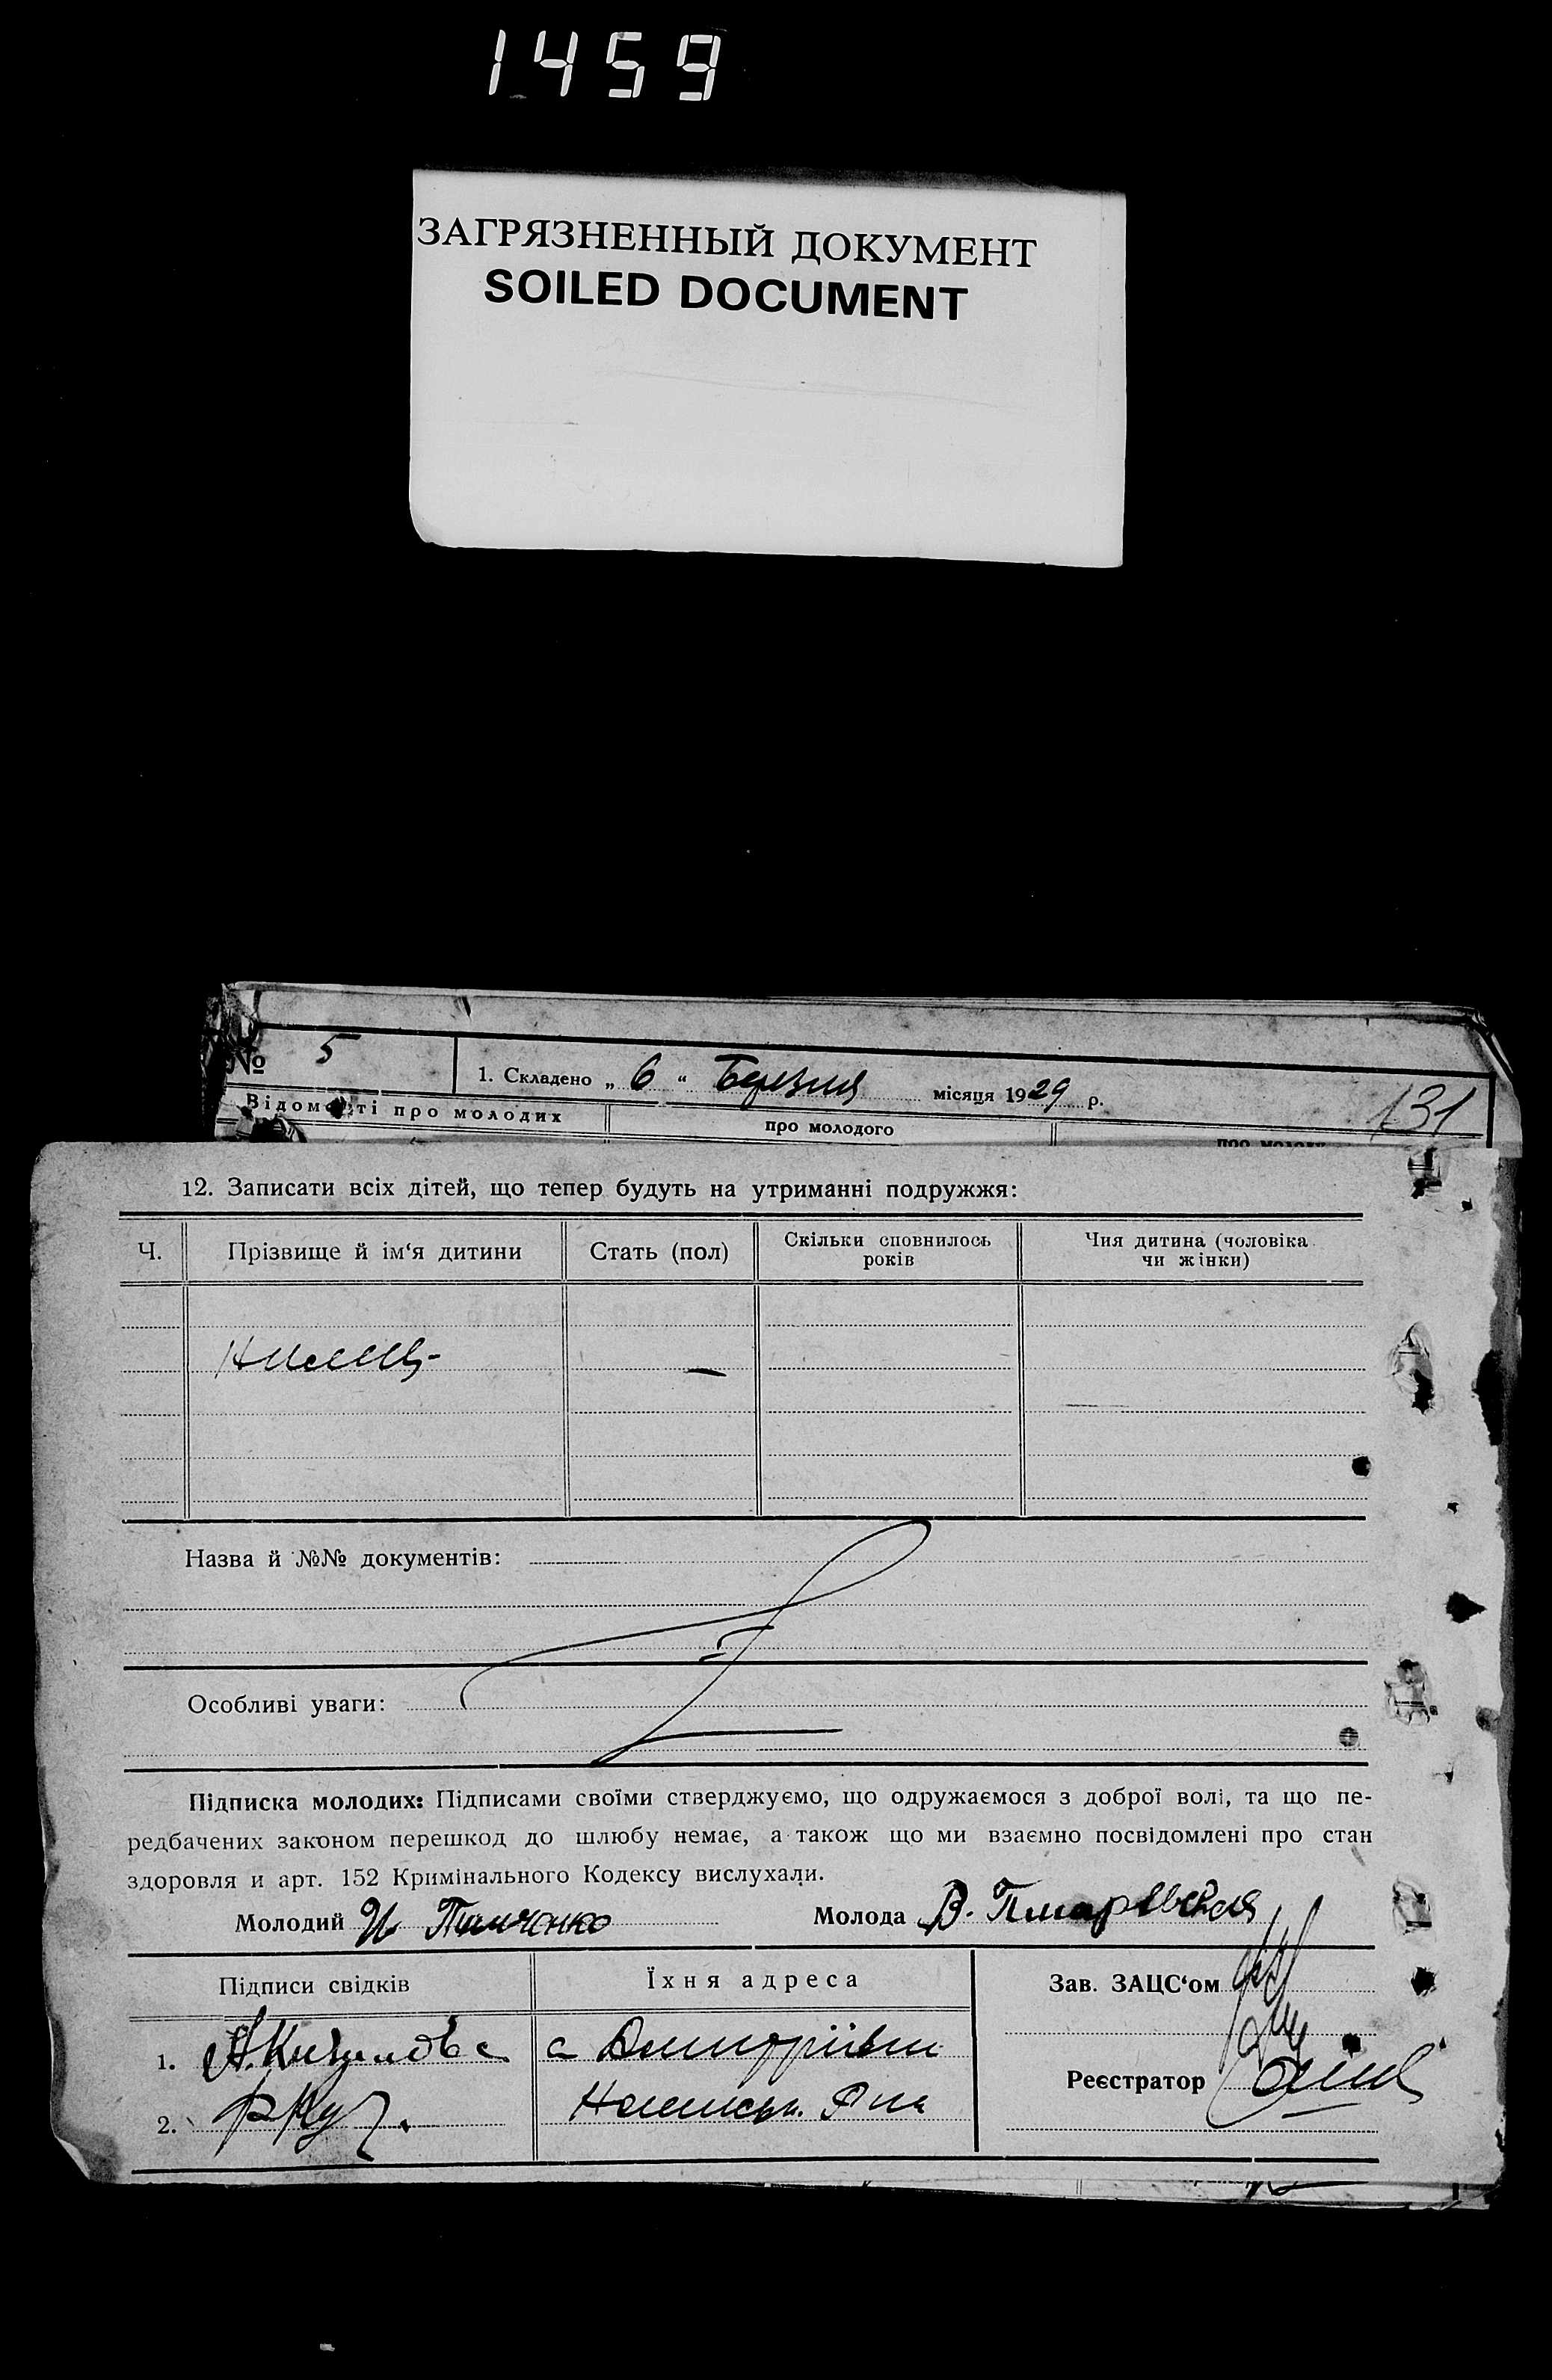 1459
ЗАГРЯЗНЕННЫЙ ДОКУМЕНТ
SOILED DOCUMENT
№ 5
1. Складено „ 6 “ Березня місяця 1929 р.
131
Відомості про молодих
про молодого
про молоду
12. Записати всіх дітей, що тепер будуть на утриманні подружжя:
Ч. Прізвище й ім‘я дитини Стать (пол) Скільки сповнилось років Чия дитина (чоловіка чи жінки)
—
Назва й №№ документів:
Особливі уваги:
Підписка молодих: Підписами своїми стверджуємо, що одружаємося з доброї волі, та що пе-
редбачених законом перешкод до шлюбу немає, а також що ми взаємно посвідомлені про стан
здоровля и арт. 152 Кримінального Кодексу вислухали.
Молодий Тимченко Молода В.
Підписи свідків Їхня адреса Зав. ЗАЦС‘ом
1. А. с Дмитрівки
Реєстратор
2.